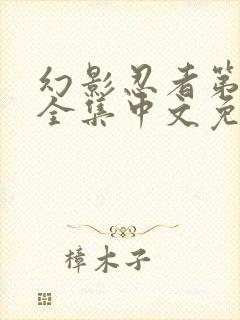 幻影忍者第
全集中文免
樟木子